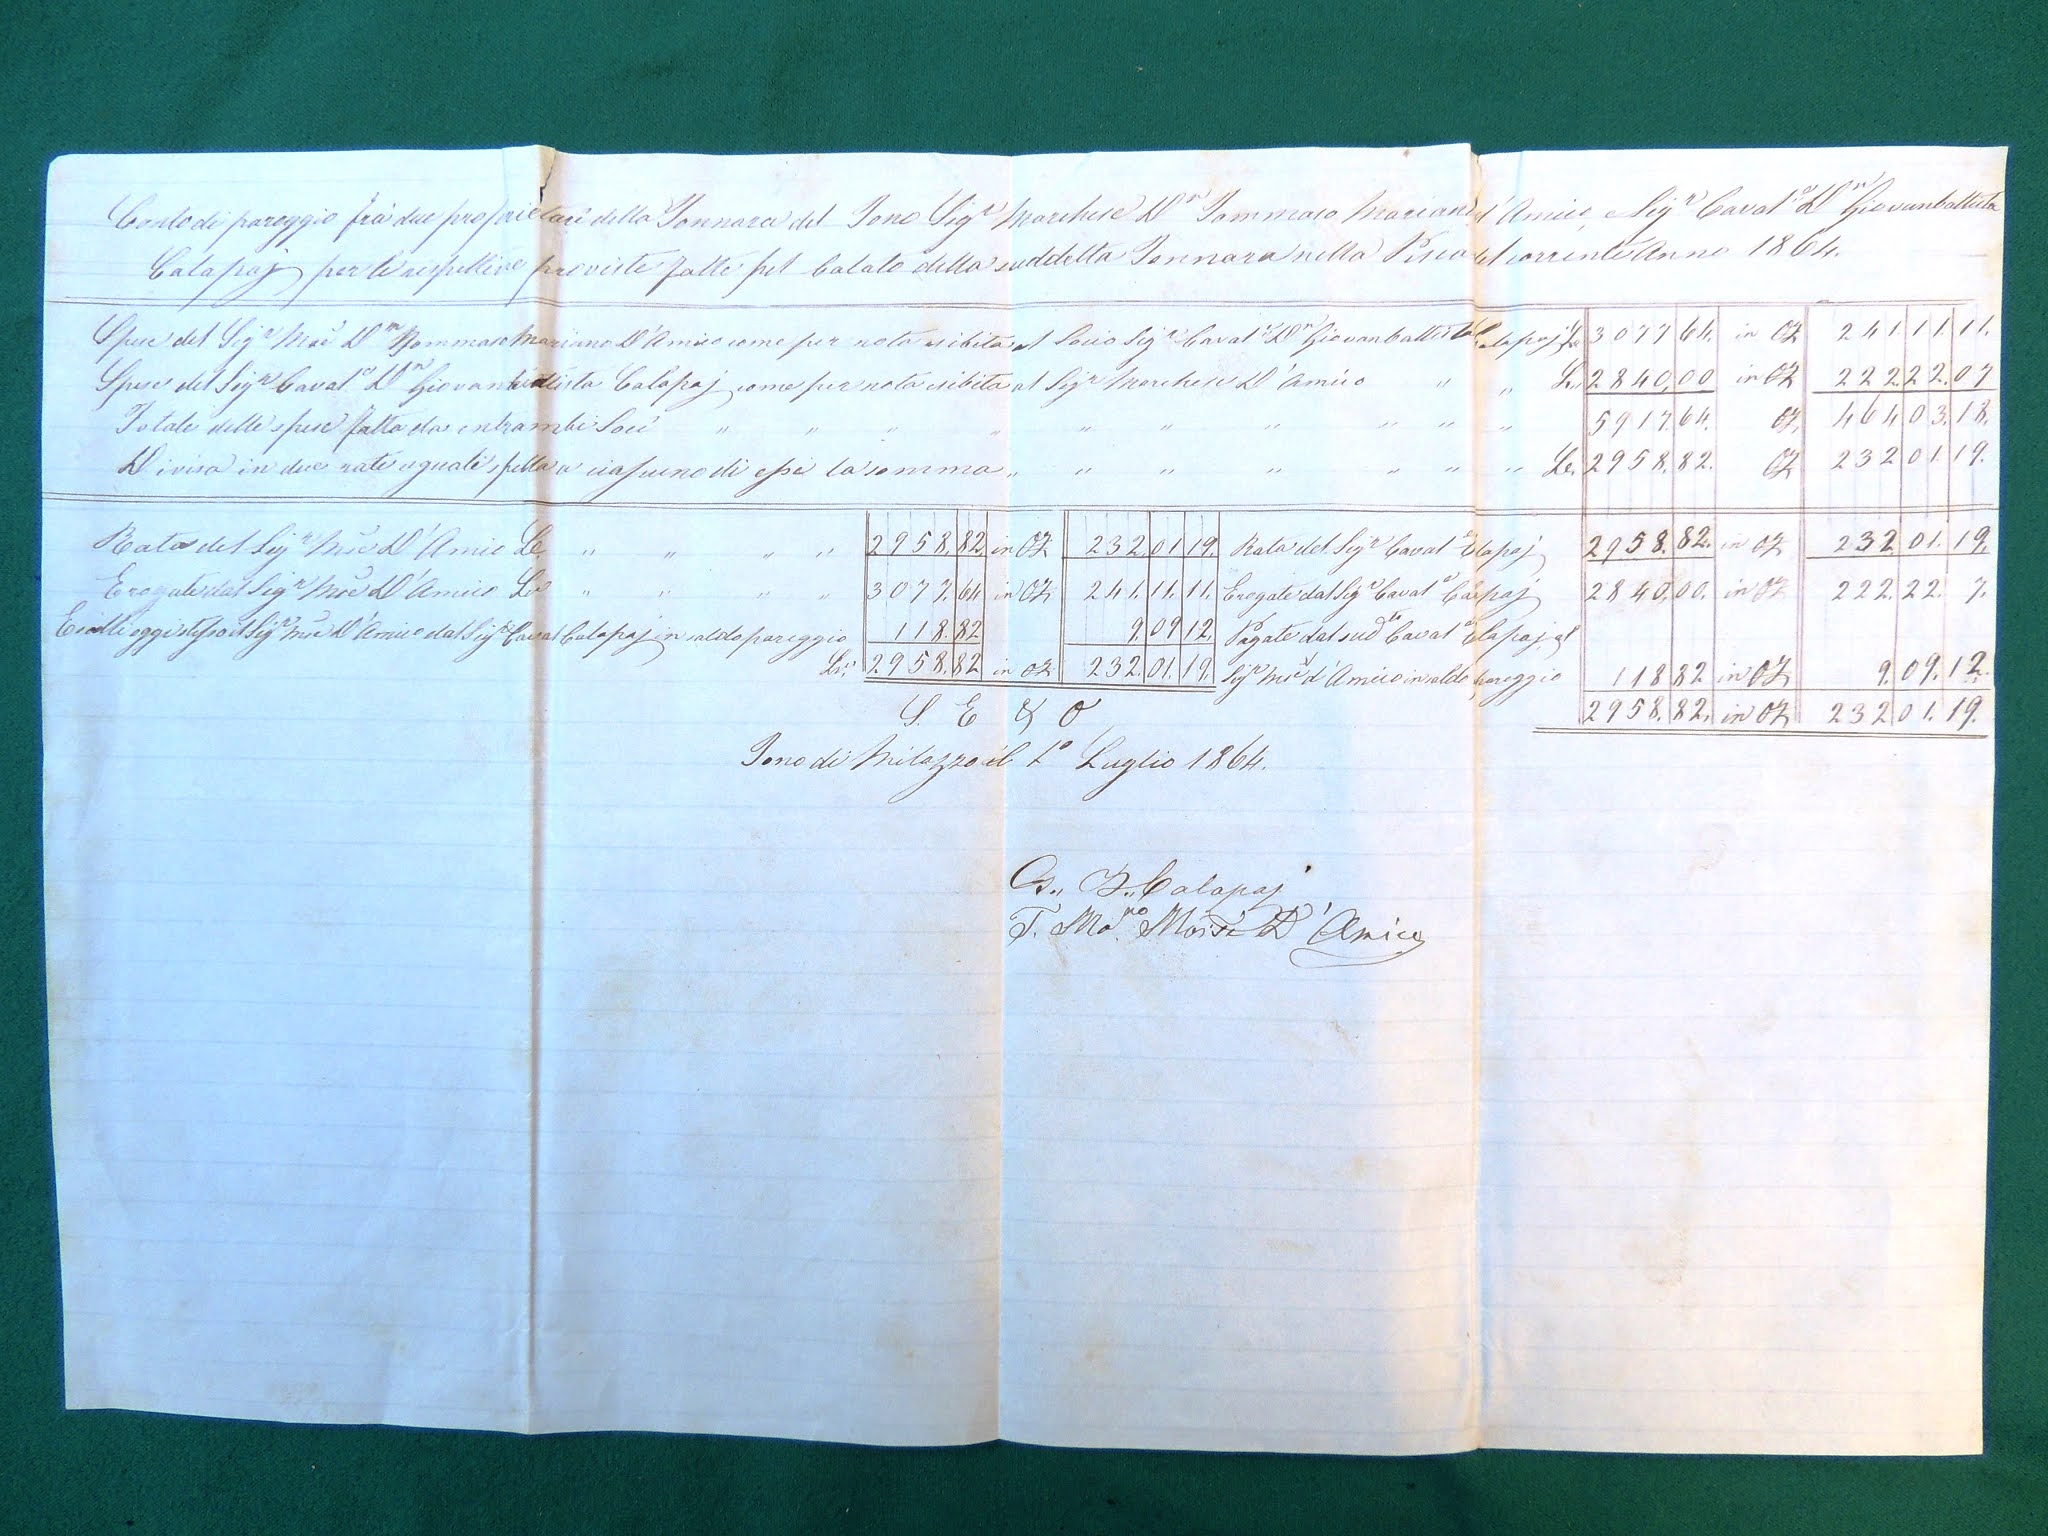 Conto di pareggio frà due proprietari della Tonnara del Tono Sig.r Marchese D.n Tommaso Mariano d'Amico, e Sig.r Caval.e D.n Giovanbattista
Calapaj per le rispettive proviste fatte pel Calato della suddetta Tonnara nella Pesca del corrente Anno 1864.
Spese del Sig.r M.se D.n Tommaso Mariano D'Amico come per nota esibita al Socio Sig.r Caval.e D.n Giovanbattista Calapaj Le. 3077 64. in Oz 241. 11. 11.
Spese del Sig.r Caval.e D.n Giovanbattista Calapaj come per nota esibita al Sig.r Marchese D'Amico " " Le. 2840,00 in Oz 222. 22. 07
Totale delle spese fatta da entrambi Socii " " " " " " " " " " 5917. 64. Oz. 464 03. 18.
Divisa in due rate uguali spetta a ciascuno di essi la somma " " " " " " " Le. 2958. 82. Oz 232 01. 19.
Rata del Sig.r M.se D'Amico Le. " " " " 2958. 82 in Oz. 232. 01 19.
Erogate dal Sig.r M.se D'Amico Le. " " " " 3077. 64 in Oz. 241. 11. 11.
Esatte oggi stesso il Sig.r M.se D'Amico dal Sig.r Caval. Calapaj in saldo pareggio 118. 82 9. 09 12.
Le. 2958. 82 in oz. 232. 01. 19.
Rata del Sig.r Caval.e Calapaj 2958. 82. in oz 232 01. 19.
Erogate dal Sig.r Caval.e Calapaj 2840,00. in oz 222. 22. 7.
Pagate dal sud.to Caval.e Calapaj, al
Sig.r M.se d'Amico in saldo pareggio 118 82 in Oz 9. 09. 12.
2958. 82. in Oz 232 01. 19.
S. E & O
Tono di Milazzo il 1.o Luglio 1864.
G.. B.. Calapaj
T. Ma.no M.se D'Amico